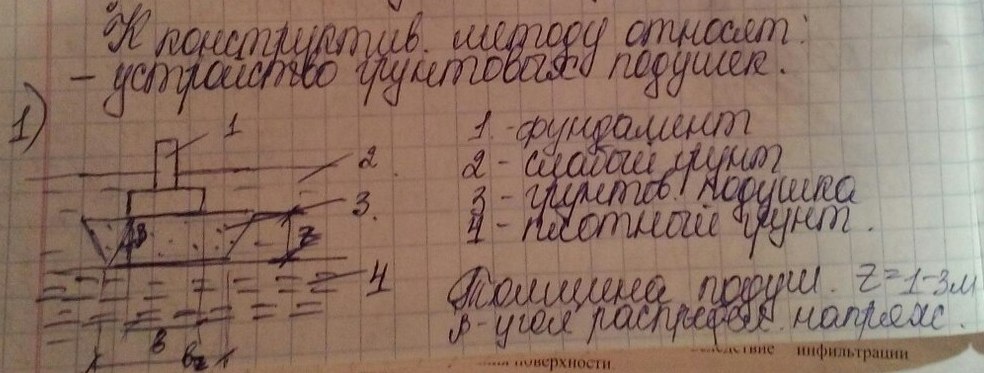 К конструктив. методу относят:
- устройство грунтовых подушек.
1)
1
2
3.
4
β
z
в
вz
1.-фундамент
2 - слабый грунт
3 - грунтов. подушка
4 - плотный грунт.
Толщина подуш. z=1-3м
β-угол распредел. напряж.
инфильтрации
поверхности.